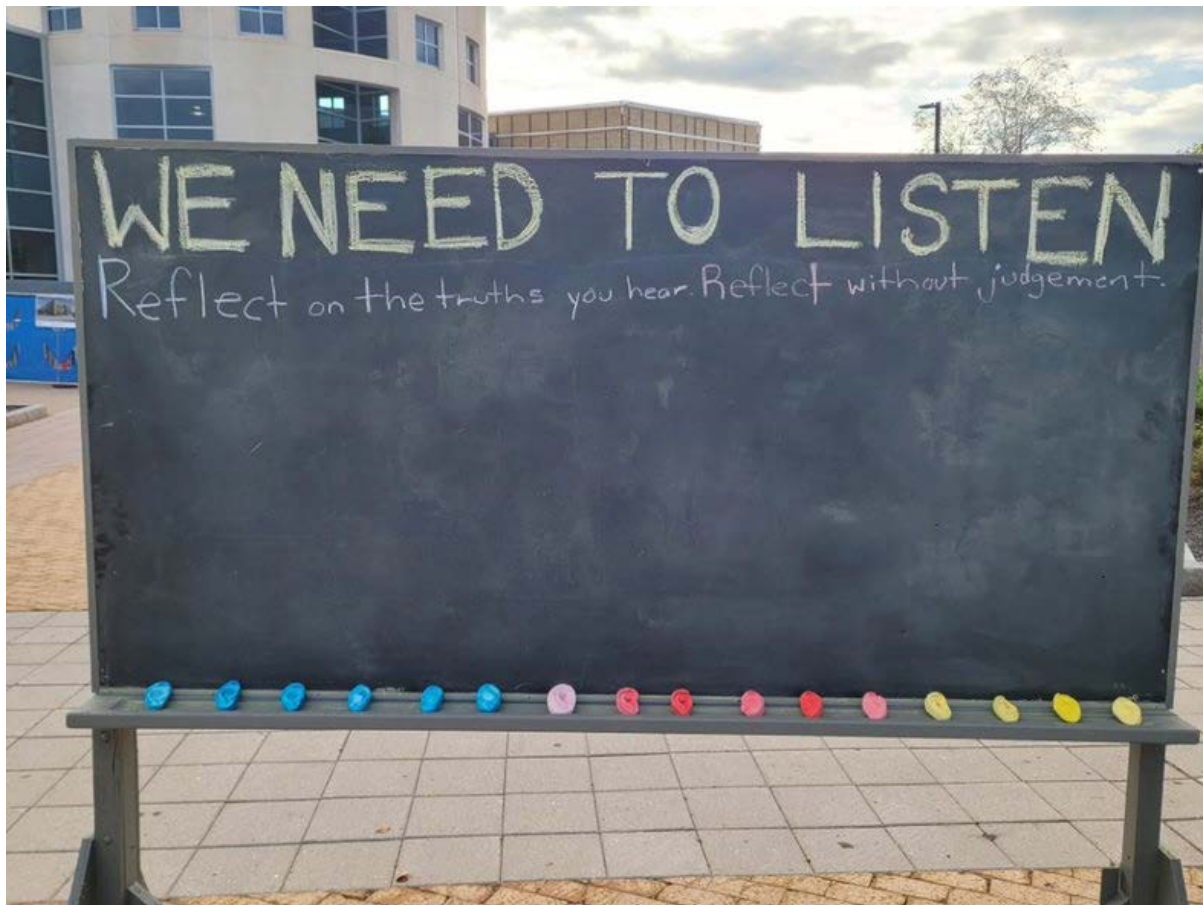 WE NEED TO LISTEN
Reflect on the truths you hear. Reflect without judgement.